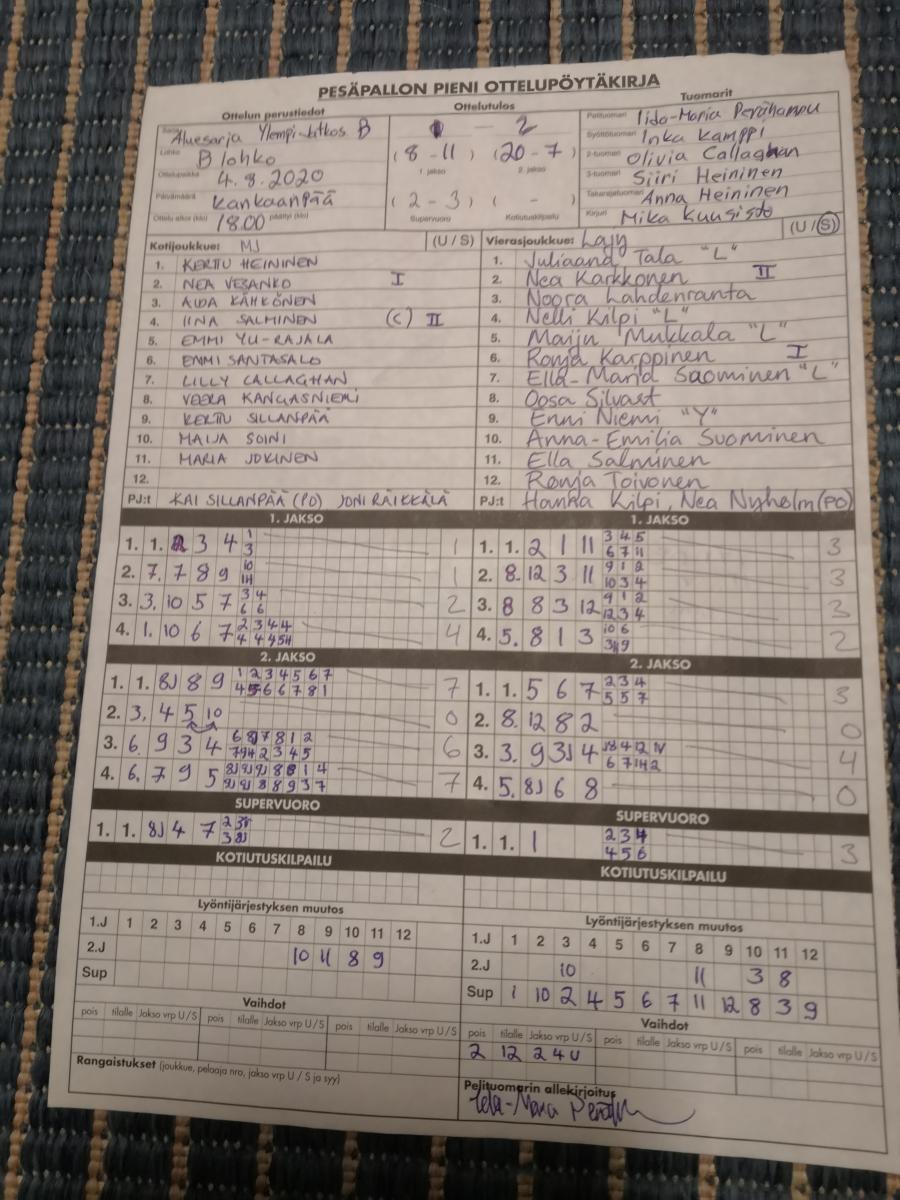 PESÄPALLON PIENI OTTELUPÖYTÄKIRJA
Ottelun perustiedot
Aluesarja Ylempi Jatkos B
Lohko B lohko
Ottelupaikka 4.8.2020
Päivämäärä Kankaanpää
Ottelu alkoi (klo) 18.00 päättyi (klo)
Ottelutulos
1 - 2
(8 - 11) (20 - 7)
1. jakso 2. jakso
(2 - 3) ( - )
Supervuoro Kotiutuskilpailu
Tuomarit
Pelituomari Iida-Maria
Syöttötuomari Inka Kamppi
2-tuomari Olivia Callaghan
3-tuomari Siiri Heininen
Takarajatuomari Anna Heininen
Kirjuri Mika Kuusisto
Kotijoukkue: MJ (U / S)
1. KERTTU HEININEN
2. NEA VESANKO I
3. AIDA KÄHKÖNEN
4. IINA SALMINEN (C) II
5. EMMI YLI-RAJALA
6. EMMI SANTASALO
7. LILLY CALLAGHAN
8. VEERA KANGASNIEMI
9. KERTTU SILLANPÄÄ
10. MAIJA SOINI
11. MARIA JOKINEN
12.
PJ:t KAI SILLANPÄÄ (PO) JONI RÄIKKÄLÄ
Vierasjoukkue: Lajy (U / S)
1. Juliaana Tala "L"
2. Nea Karkkonen II
3. Noora Lahdenranta
4. Nelli Kilpi "L"
5. Maiju Mukkala "L"
6. Ronja Karppinen I
7. Ella-Maria Saominen "L"
8. Oosa Silvast
9. Enni Niemi "Y"
10. Anna-Emilia Suominen
11. Ella Salminen
12. Ronja Toivonen
PJ:t Hanna Kilpi, Nea Nyholm (PO)
1. JAKSO
1. 1. 2 3 4 1
3
1
2. 7. 7 8 9 10
1
3. 3. 10 5 7 3 4
6 6
2
4. 1. 10 6 7 2 3 4 4
4
2. JAKSO
1. 1. 8J 8 9 1 2 3 4 5 6 7
4 5 6 6 7 8 1
7
2. 3. 4 5 10
0
3. 6. 9 3 4
6
4. 6. 7 9 5
7
SUPERVUORO
1. 1. 8J 4 7
2
KOTIUTUSKILPAILU
Lyöntijärjestyksen muutos
1.J 1 2 3 4 5 6 7 8 9 10 11 12
2.J 10 11 8 9
Sup
Vaihdot
pois tilalle Jakso vrp U/S pois tilalle Jakso vrp U/S pois tilalle Jakso vrp U/S
Rangaistukset (joukkue, pelaaja nro, jakso vrp U / S ja syy)
1. JAKSO
1. 1. 2 1 11 3 4 5
6 7 11
3
2. 8. 12 3 11 9 1 2
10 3 4
3
3. 8 8 3 12 9 1 2
12 3 4
3
4. 5. 8 1 3 10 6
2
2. JAKSO
1. 1. 5 6 7 2 3 4
5 5 7
3
2. 8. 12 8 2
0
3. 3. 9 3J 4
4
4. 5. 8J 6 8
0
SUPERVUORO
1. 1. 1 2 3 4
4 5 6
3
KOTIUTUSKILPAILU
Lyöntijärjestyksen muutos
1.J 1 2 3 4 5 6 7 8 9 10 11 12
2.J 10 11 3 8
Sup 1 10 2 4 5 6 7 11 12 8 3 9
Vaihdot
pois tilalle Jakso vrp U/S pois tilalle Jakso vrp U/S pois tilalle Jakso vrp U/S
2 12 2 4 U
Pelituomarin allekirjoitus